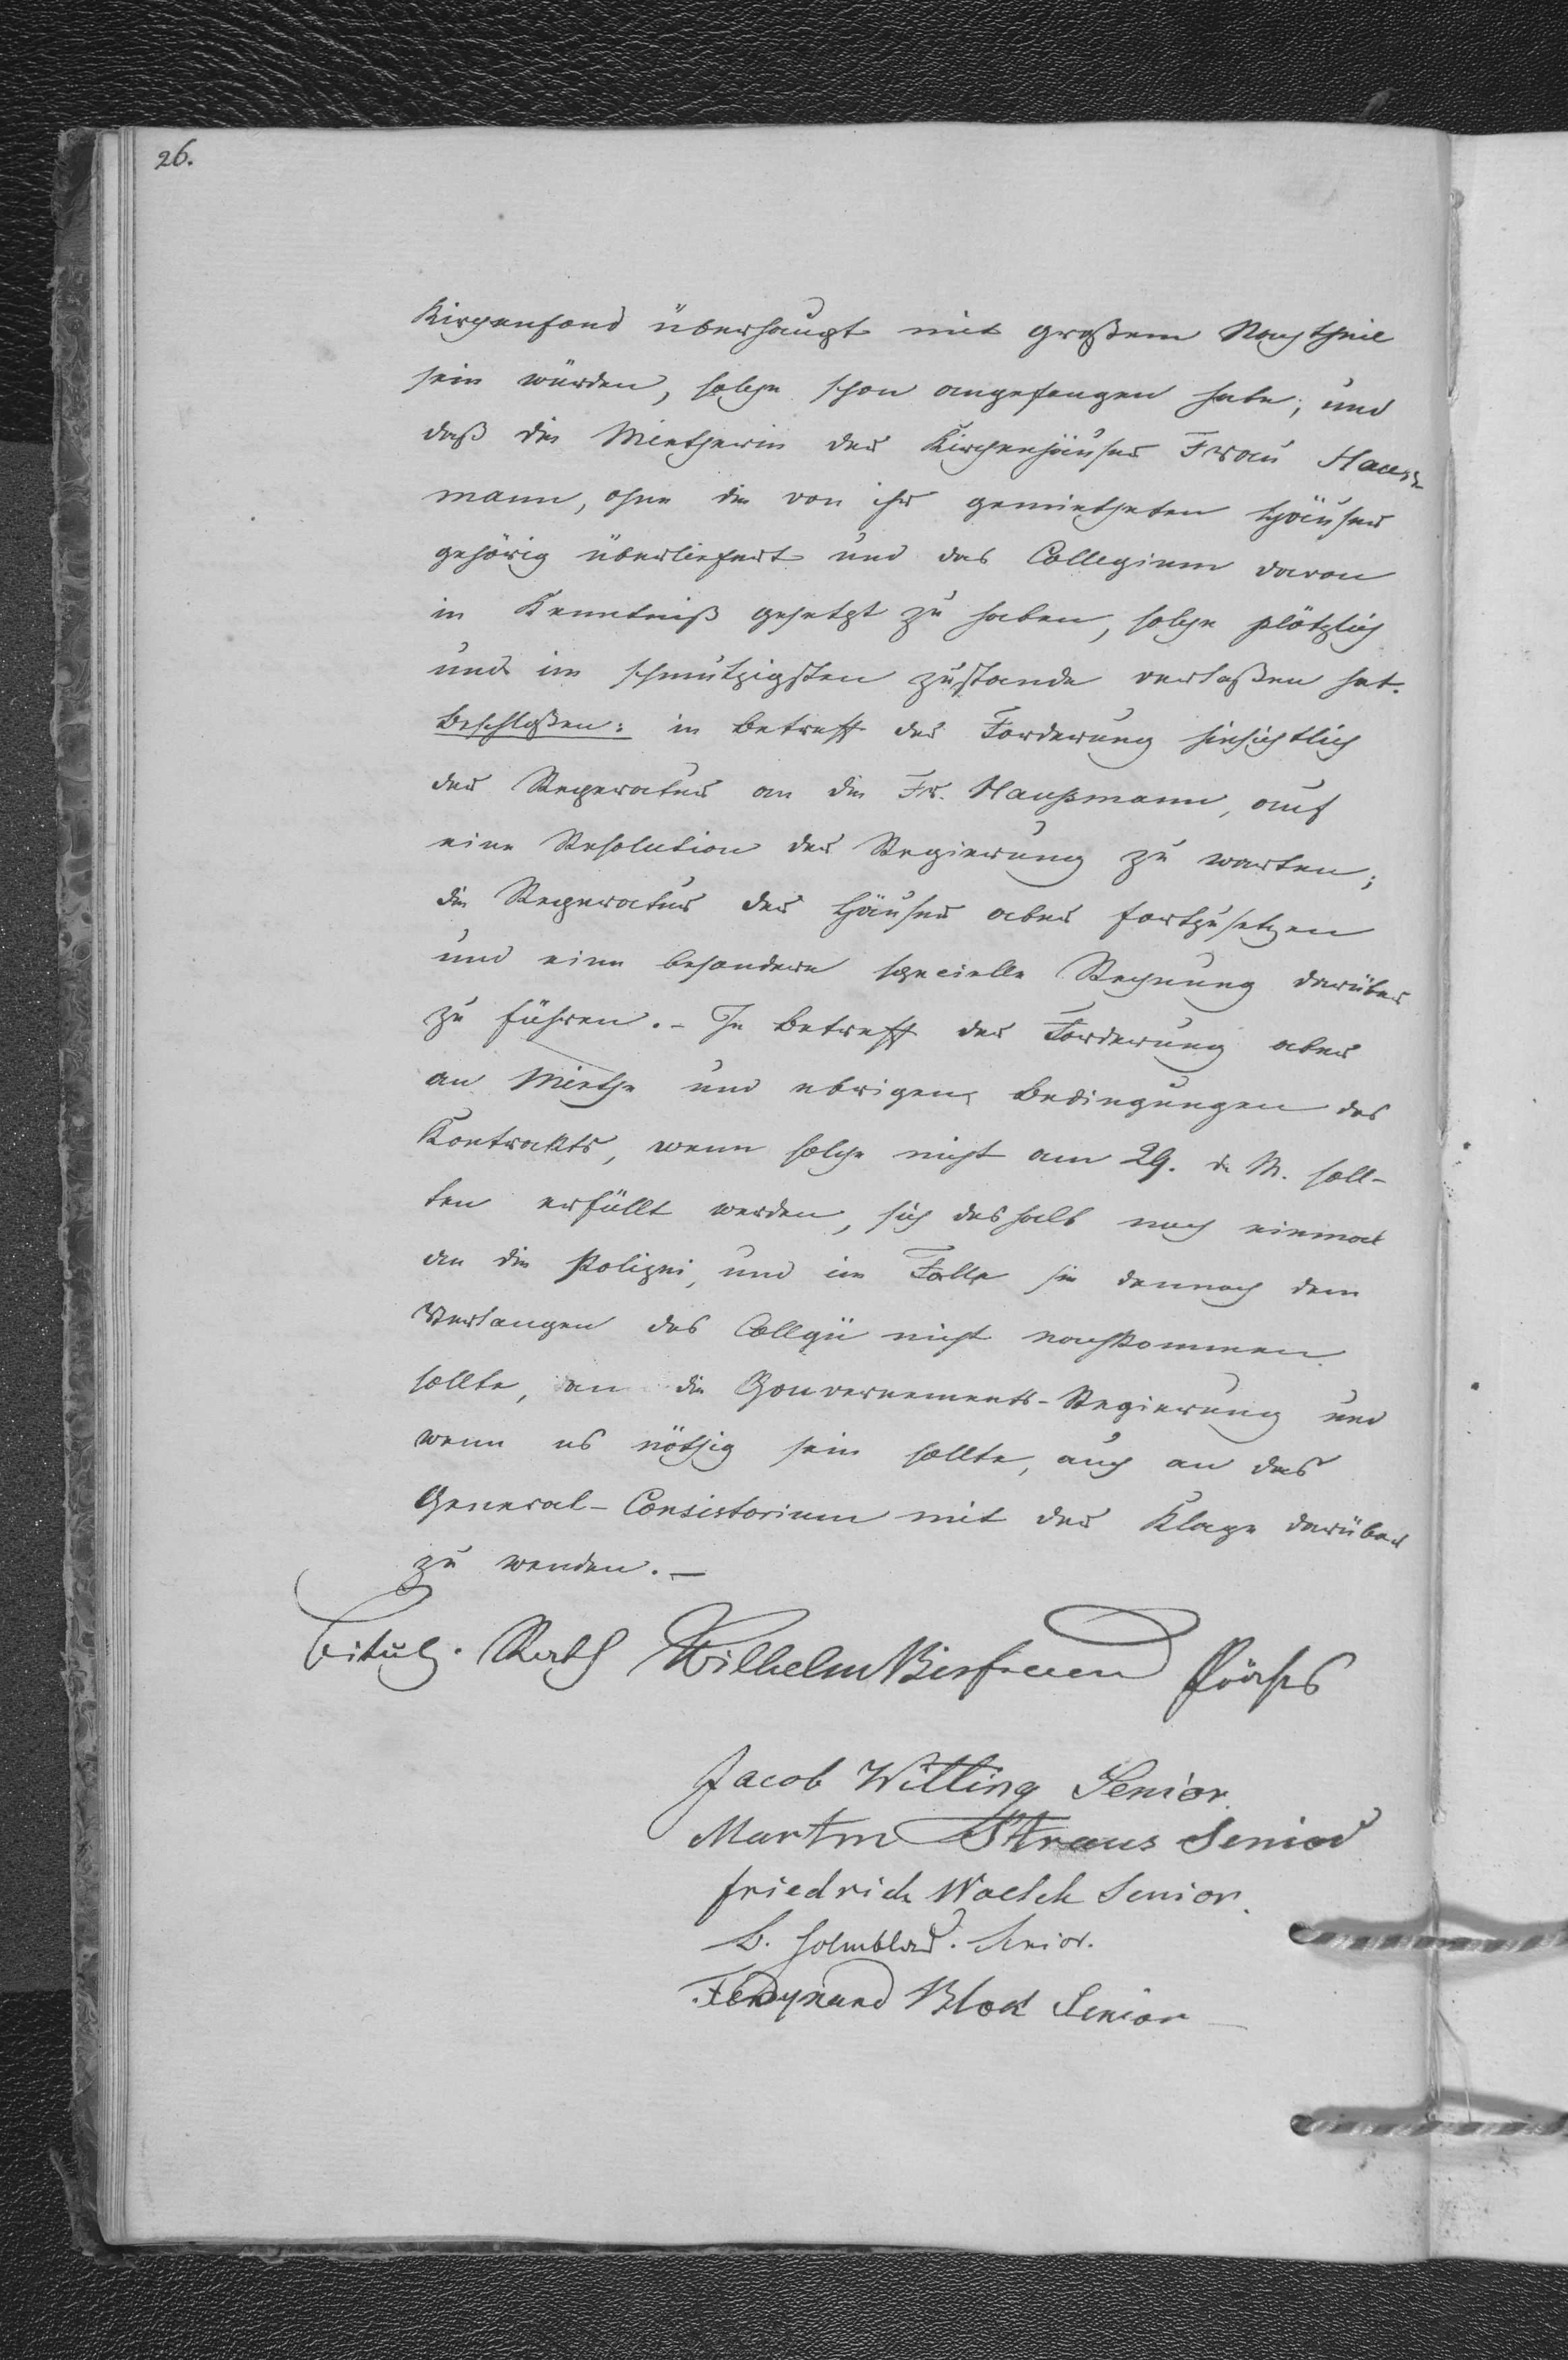 26.
Kirchenfond überhaupt mit großem Nachtheil
sein würden, solche schon angefangen habe; und
daß die Mietherin der Kirchenhäuser Frau Hauß-
mann, ohne die von ihr gemietheten Häuser
gehörig überliefert und das Collegium davon
in Kenntniß gesetzt zu haben, solche plötzlich
und im schmutzigsten Zustande verlaßen hat.
Beschloßen: in Betreff der Forderung hinsichtlich
der Reperatur an die Fr. Haußmann, auf
eine Resolution der Regierung zu warten;
die Reperatur der Häuser aber fortzusetzen
und eine besondere specielle Rechnung darüber
zu führen. - In Betreff der Forderung aber
an Miethe und ebrigen Bedingungen des
Kontrakts, wenn solche nicht am 29. d. M. soll-
ten erfüllt werden, sich deshalb noch einmal
an die Polizei, und im Falle sie dennoch dem
Verlangen des Collgii nicht nachkommen
sollte, an die Gouvernements-Regierung und
wenn es nöthig sein sollte, auch an das
General-Consistorium mit der Klage darüber
zu wenden. -
Titul. Rath Wilhelm Präses
Jacob Witting Senior.
Martin Straus Senior
Friedrich Waelch Senior.
B. Holmblad. Senior.
Ferdynand Blok Senior